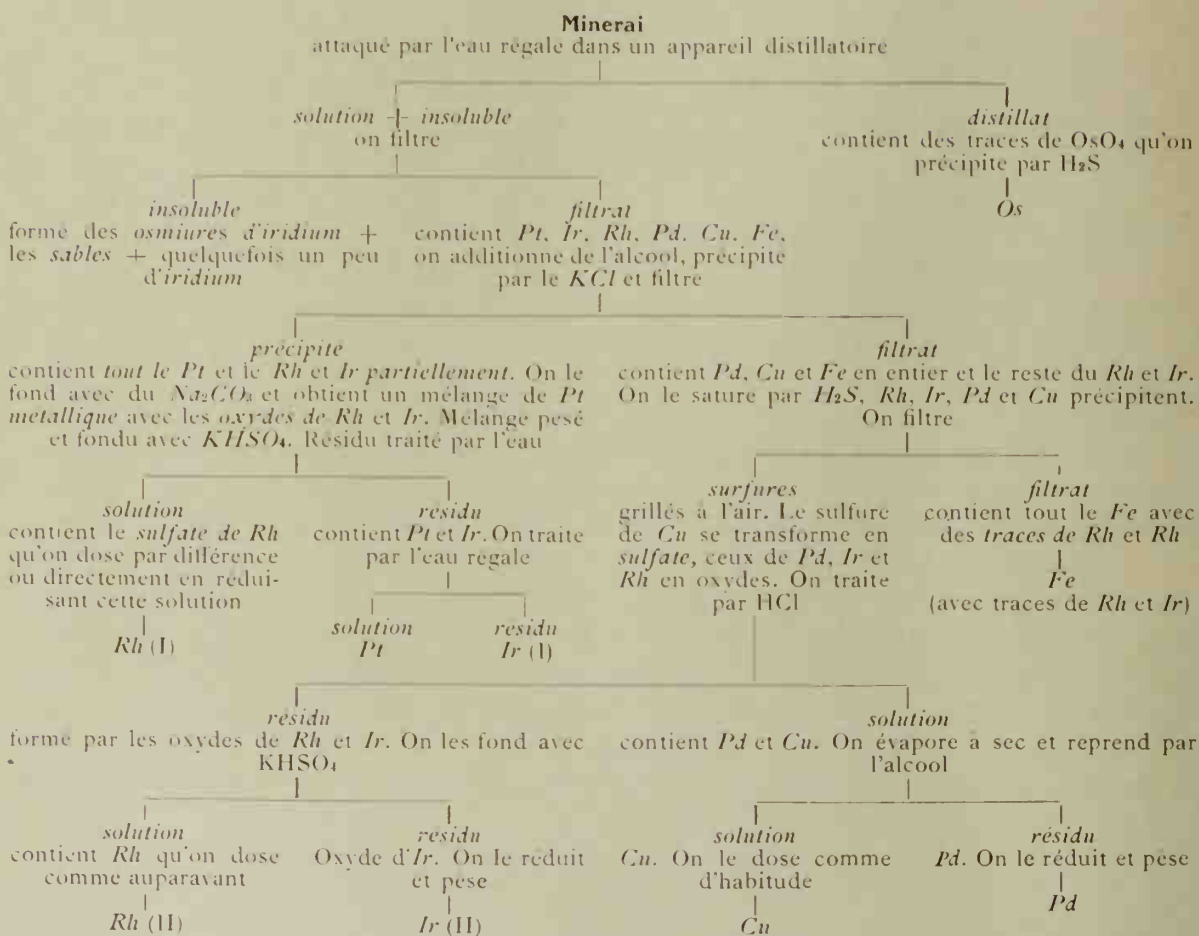 Minerai
attaqué par l'eau régale dans un appareil distillatoire
solution + insoluble
on filtre
distillat
contient des traces de OsO₄ qu'on
précipite par H₂S
Os
insoluble
formé des osmiures d'iridium +
les sables + quelquefois un peu
d'iridium
filtrat
contient Pt, Ir, Rh, Pd, Cu, Fe,
on additionne de l'alcool, précipite
par le KCl et filtre
précipité
contient tout le Pt et le Rh et Ir partiellement. On le
fond avec du Na₂CO₃ et obtient un mélange de Pt
metallique avec les oxydes de Rh et Ir. Mélange pesé
et fondu avec KHSO₄. Résidu traité par l'eau
filtrat
contient Pd, Cu et Fe en entier et le reste du Rh et Ir.
On le sature par H₂S, Rh, Ir, Pd et Cu précipitent.
On filtre
solution
contient le sulfate de Rh
qu'on dose par différence
ou directement en rédui-
sant cette solution
Rh (I)
résidu
contient Pt et Ir. On traite
par l'eau régale
solution
Pt
résidu
Ir (I)
surfures
grillés à l'air. Le sulfure
de Cu se transforme en
sulfate, ceux de Pd, Ir et
Rh en oxydes. On traite
par HCl
filtrat
contient tout le Fe avec
des traces de Rh et Rh
Fe
(avec traces de Rh et Ir)
résidu
formé par les oxydes de Rh et Ir. On les fond avec
KHSO₄
solution
contient Pd et Cu. On évapore à sec et reprend par
l'alcool
solution
contient Rh qu'on dose
comme auparavant
Rh (II)
résidu
Oxyde d'Ir. On le réduit
et pèse
Ir (II)
solution
Cu. On le dose comme
d'habitude
Cu
résidu
Pd. On le réduit et pèse
Pd